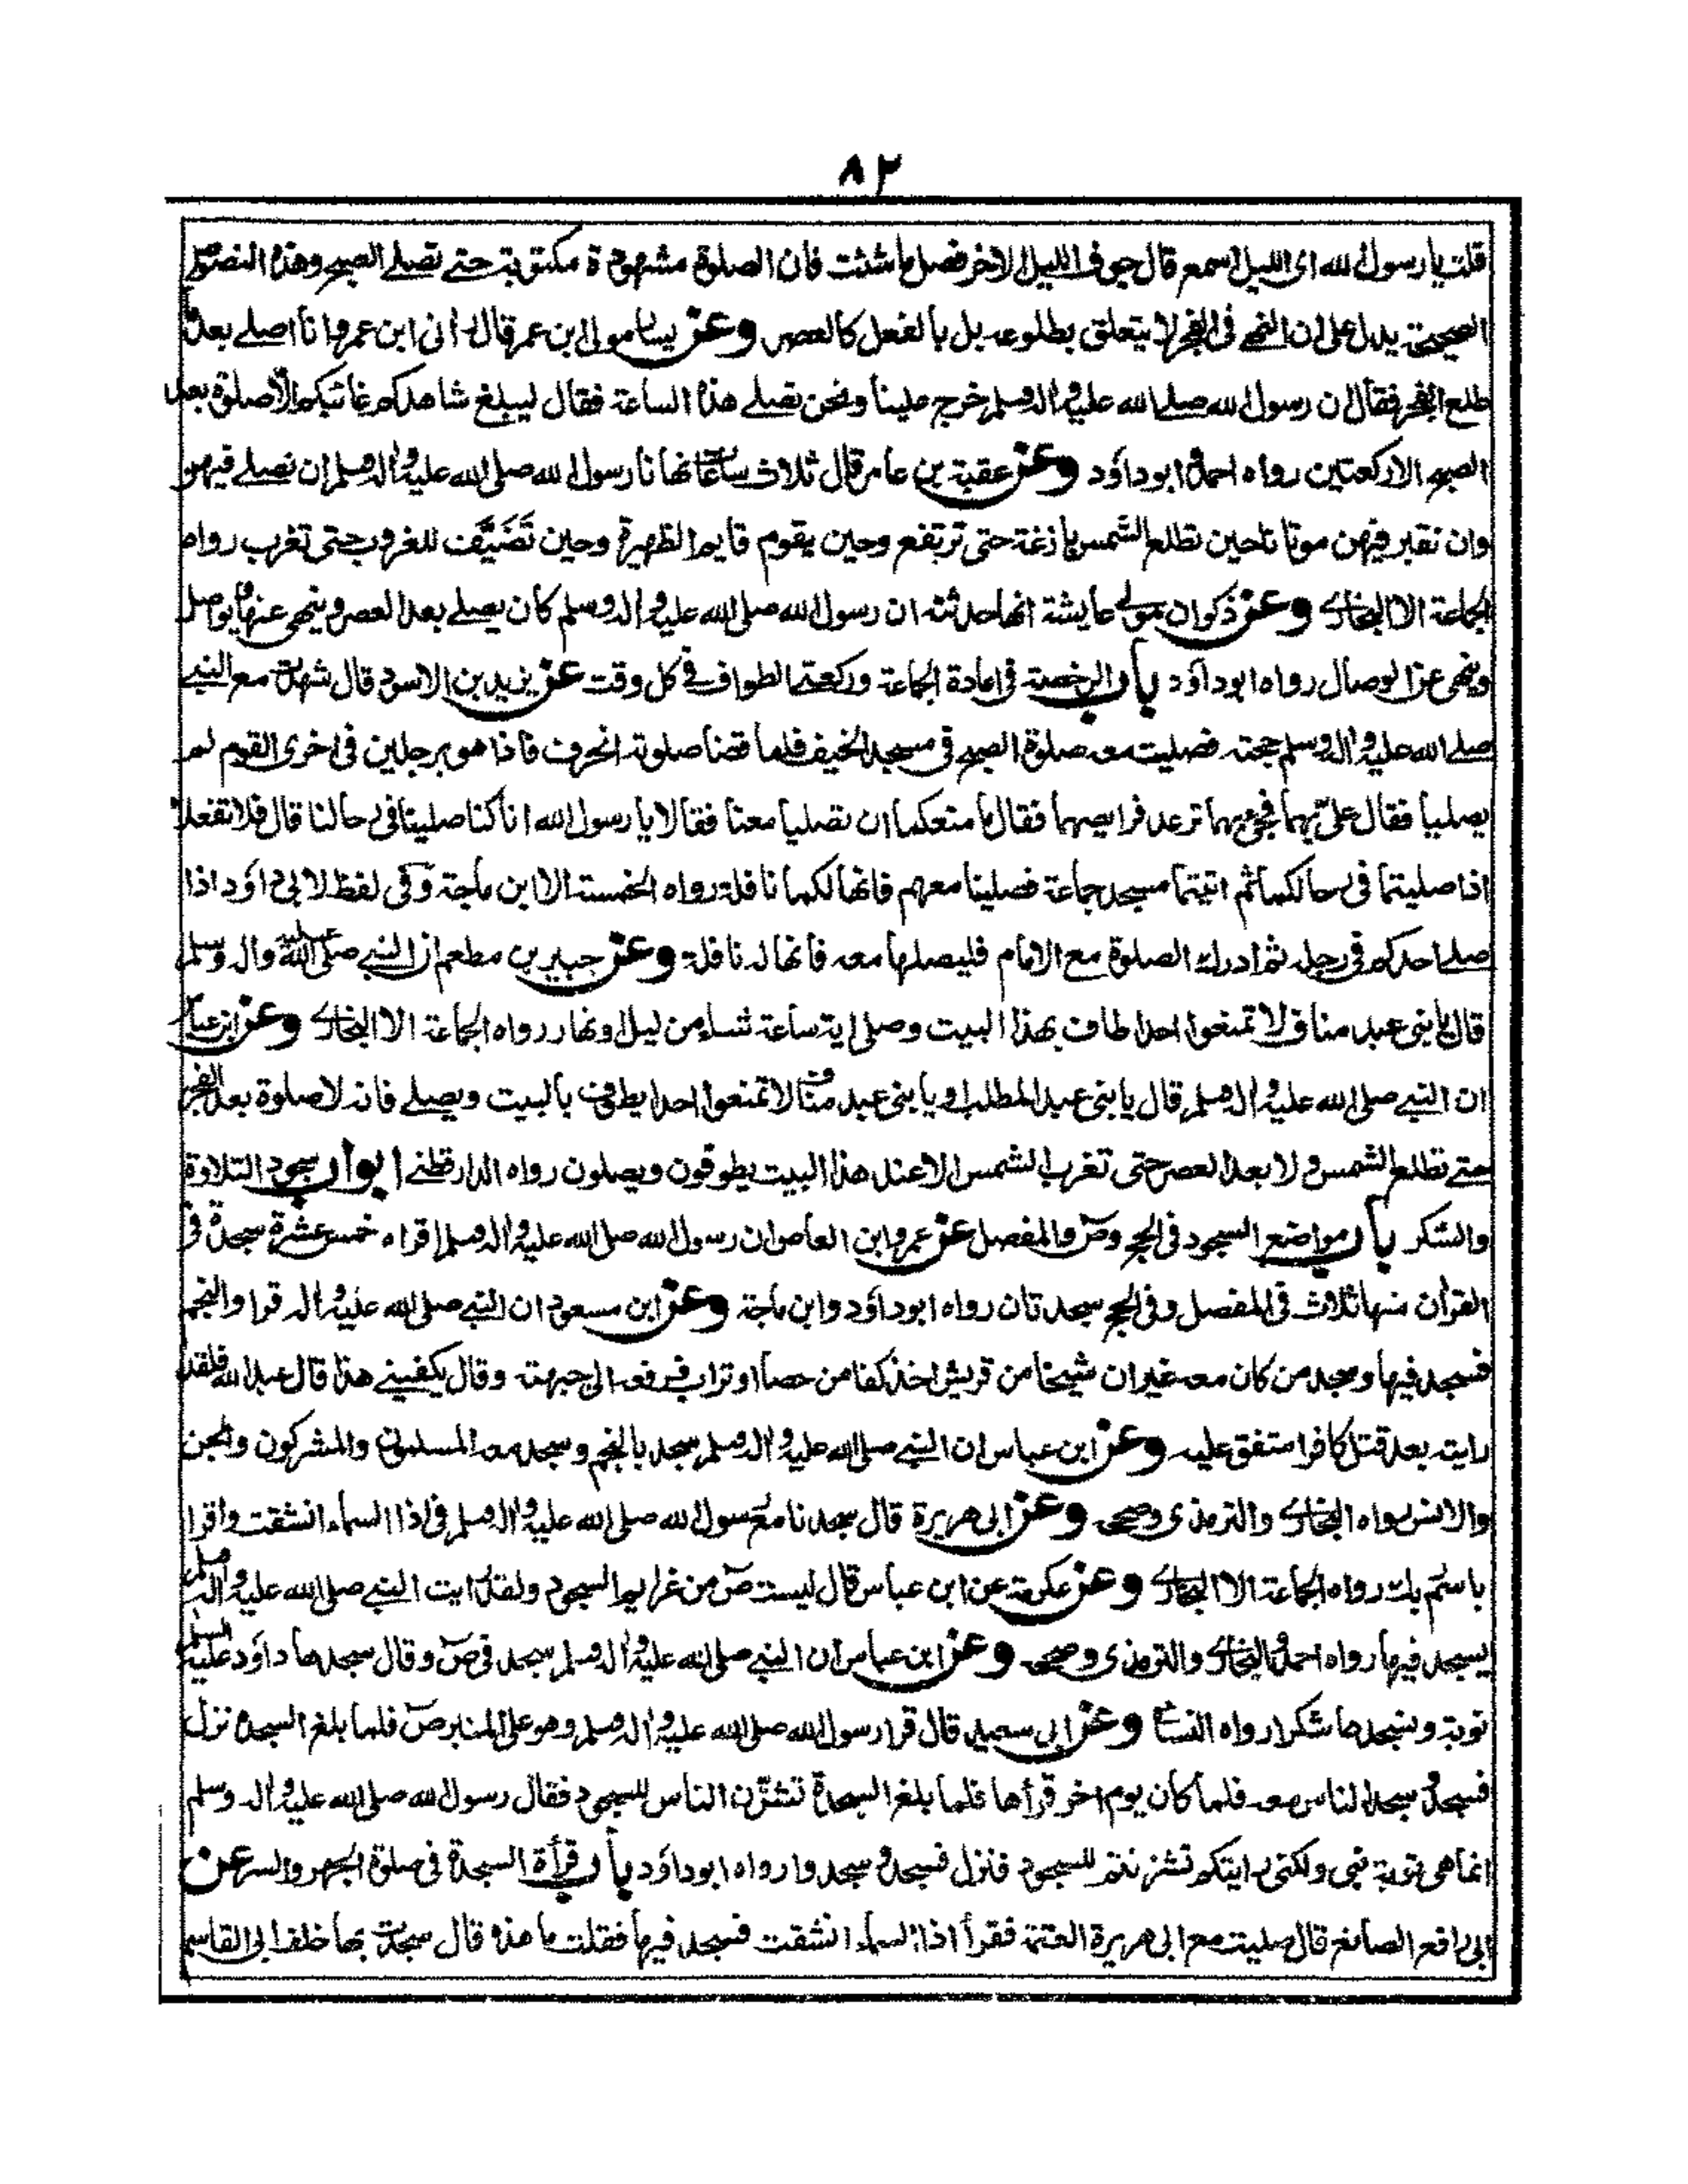 ٨٢
قلت يا رسول الله اى الليل اسمع قال جوف الليل الاخر فصل ما شئت فان الصلوة مشهودة مكتوبة حتے تصلے الصبح وهذه النصوص
الصحيحة يدل على ان النهے فى الفجر لا يتعلق بطلوعه بل بالفعل كالعصر وعن يسار مولى ابن عمر قال رانى ابن عمر وانا اصلے بعدما
طلع الفجر فقال ان رسول الله صلے الله عليه واله وسلم خرج علينا ونحن نصلے هذه الساعة فقال ليبلغ شاهدكم غائبكم الا صلوة بعد
الصبح الا ركعتين رواه احمد وابو داؤد وعن عقبة بن عامر قال ثلاث ساعات نهانا رسول الله صلى الله عليه واله وسلم ان نصلے فيهن
وان نقبر فيهن موتانا حين تطلع الشمس بازغة حتى ترتفع وحين يقوم قايم الظهيرة وحين تَضَيَّف للغروب حتى تغرب رواه
الجماعة الا البخارى وعن ذكوان مولى عايشة انها حدثته ان رسول الله صلى الله عليه واله وسلم كان يصلے بعد العصر وينهى عنها ويواصل
وينهى عن الوصال رواه ابو داؤد باب الرخصة فى اعادة الجماعة وركعتے الطواف فے كل وقت عن يزيد بن الاسود قال شهدت مع النبے
صلے الله عليه واله وسلم حجته فصليت معه صلوة الصبح فى مسجد الخيف فلما قضا صلوته انحرف فاذا هو برجلين فى اخرى القوم لم
يصليا فقال علىّ بهما فجئ بهما ترعد فرايصهما فقال ما منعكما ان تصليا معنا فقالا يا رسول الله انا كنا صلينا فى رحالنا قال فلا تفعلا
اذا صليتما فى رحالكما ثم اتيتما مسجد جماعة فصلينا معهم فانها لكما نافلة رواه الخمسة الا ابن ماجة وفى لفظ لابى داؤد اذا
صلے احدكم فى رحله ثم ادرك الصلوة مع الامام فليصلها معه فانها له نافلة وعن جبير بن مطعم ان النبے صلى الله عليه واله وسلم
قال يا بنى عبد مناف لا تمنعوا احدا طاف بهذا البيت وصلے اية ساعة شاء من ليل او نهار رواه الجماعة الا البخارى وعن ابن عباس
ان النبے صلى الله عليه واله وسلم قال يا بنى عبد المطلب ويا بنى عبد مناف لا تمنعوا احدا يطوف بالبيت ويصلے فانه لا صلوة بعد الفجر
حتے تطلع الشمس ولا بعد العصر حتى تغرب الشمس الا عند هذا البيت يطوفون ويصلون رواه الدارقطنے ابواب سجود التلاوة
والشكر باب مواضع السجود فى الحج وصٓ والمفصل عن عمرو ابن العاص ان رسول الله صلى الله عليه واله وسلم اقراه خمس عشرة سجدة فى
القران منها ثلاث فى المفصل وفى الحج سجدتان رواه ابو داؤد وابن ماجة وعن ابن مسعود ان النبے صلى الله عليه واله قرا والنجم
فسجد فيها وسجد من كان معه غير ان شيخا من قريش اخذ كفا من حصا او تراب فرفعه الى جبهته وقال يكفينے هذا قال عبد الله فلقد
رايته بعد قتل كافرا متفق عليه وعن ابن عباس ان النبے صلى الله عليه واله وسلم سجد بالنجم وسجد معه المسلمون والمشركون والجن
والانس رواه البخارى والترمذى وصححه وعن ابى هريرة قال سجدنا مع رسول الله صلى الله عليه واله وسلم فى اذا السماء انشقت واقرا
باسم ربك رواه الجماعة الا البخارى وعن عكرمة عن ابن عباس قال ليست صٓ من عزايم السجود ولقد رايت النبے صلى الله عليه واله وسلم
يسجد فيها رواه احمد والبخارى والترمذى وصححه وعن ابن عباس ان النبے صلى الله عليه واله وسلم سجد فى صٓ وقال سجدها داؤد عليه السلام
توبة ونسجدها شكرا رواه النسائى وعن ابى سعيد قال قرا رسول الله صلى الله عليه واله وسلم وهو على المنبر صٓ فلما بلغ السجدة نزل
فسجد وسجد الناس معه فلما كان يوم اخر قرأها فلما بلغ السجدة تشزّن الناس للسجود فقال رسول الله صلى الله عليه واله وسلم
انما هى توبة نبى ولكنى رايتكم تشزنتم للسجود فنزل فسجد وسجدوا رواه ابو داؤد باب قرأة السجدة فى صلوة الجهر والسر عن
ابى رافع الصايغ قال صليت مع ابى هريرة العتمة فقرأ اذا السماء انشقت فسجد فيها فقلت ما هذه قال سجدت بها خلف ابى القاسم